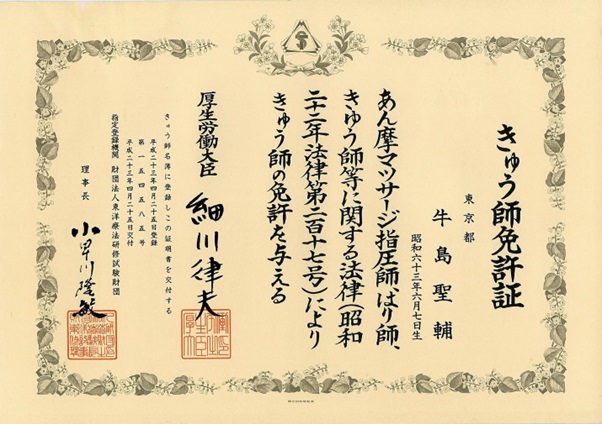 きゅう師免許証
東京都
牛島聖輔
昭和六十三年六月七日生
あん摩マツサージ指圧師、はり師、
きゅう師等に関する法律(昭和
二十二年法律第二百十七号)により
きゅう師の免許を与える
厚生労働大臣 細川律夫
きゅう師名簿に登録しこの証明書を交付する
平成二十三年四月二十五日登録
第一五四五八五号
平成二十三年四月二十五日交付
指定登録機関 財団法人東洋療法研修試験財団
理事長 小早川隆敏